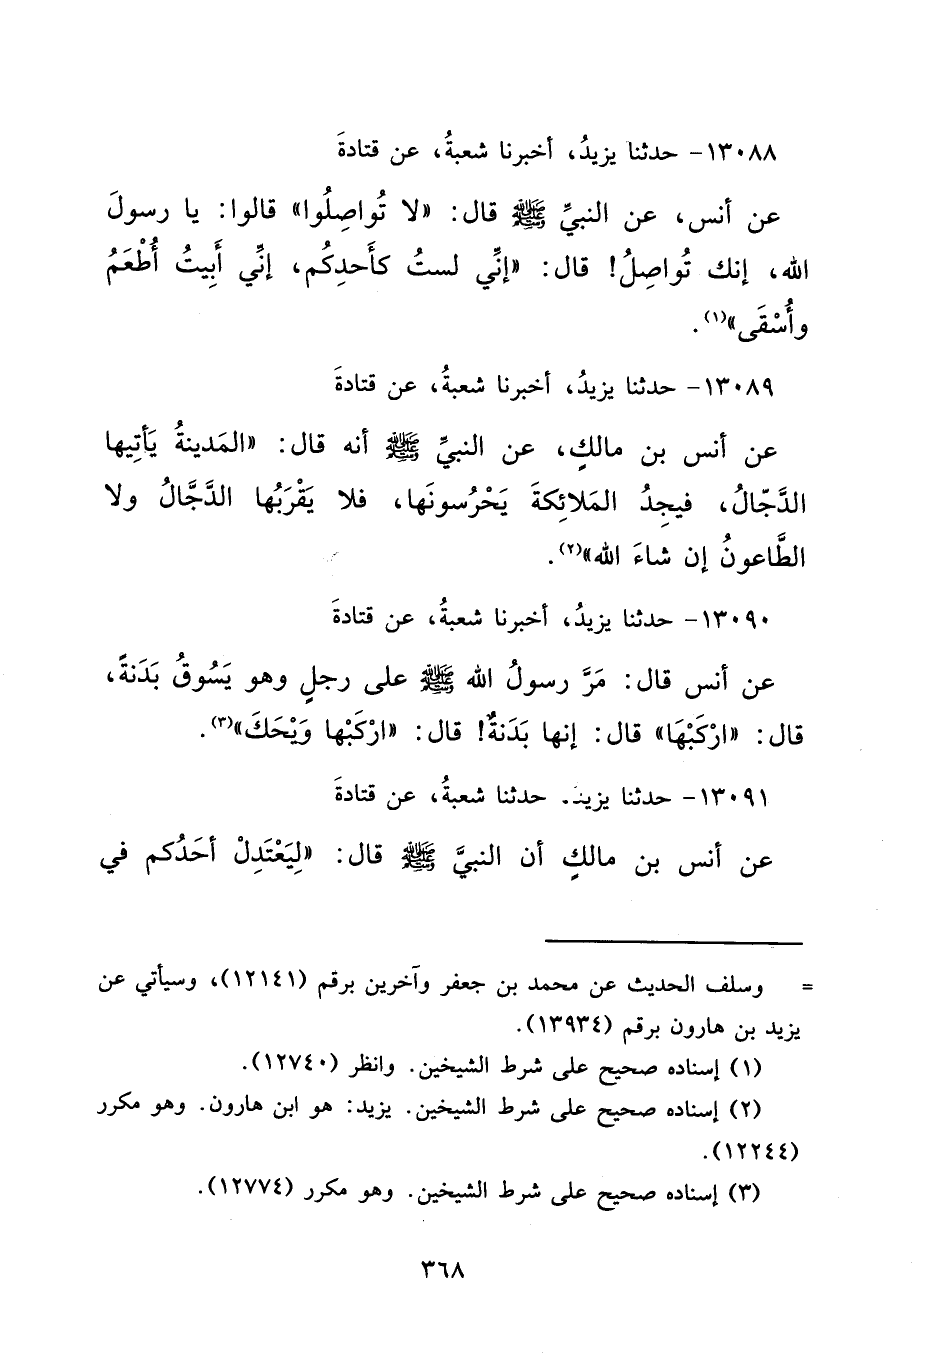 ١٣٠٨٨- حدثنا يزيدُ، أخبرنا شعبةُ، عن قتادةَ
عن أنس، عن النبيِّ ﷺ قال: «لا تُواصِلُوا» قالوا: يا رسولَ
الله، إنك تُواصِلُ! قال: «إنِّي لستُ كأَحدِكُم، إنِّي أَبِيتُ أُطْعَمُ
وأُسْقَى»(١).
١٣٠٨٩- حدثنا يزيدُ، أخبرنا شعبةُ، عن قتادةَ
عن أنس بن مالكٍ، عن النبيِّ ﷺ أنه قال: «المَدينةُ يَأتِيها
الدَّجّالُ، فيجِدُ المَلائِكةَ يَحْرُسونَها، فلا يَقْرَبُها الدَّجَّالُ ولا
الطَّاعونُ إن شاءَ الله»(٢).
١٣٠٩٠- حدثنا يزيدُ، أخبرنا شعبةُ، عن قتادةَ
عن أنس قال: مَرَّ رسولُ الله ﷺ على رجلٍ وهو يَسُوقُ بَدَنةً،
قال: «ارْكَبْهَا» قال: إنها بَدَنةٌ! قال: «ارْكَبْها وَيْحَكَ»(٣).
١٣٠٩١- حدثنا يزيد. حدثنا شعبةُ، عن قتادةَ
عن أنس بن مالكٍ أن النبيَّ ﷺ قال: «لِيَعْتَدِلْ أحَدُكم في
= وسلف الحديث عن محمد بن جعفر وآخرين برقم (١٢١٤١)، وسيأتي عن
يزيد بن هارون برقم (١٣٩٣٤).
(١) إسناده صحيح على شرط الشيخين. وانظر (١٢٧٤٠).
(٢) إسناده صحيح على شرط الشيخين. يزيد: هو ابن هارون. وهو مكرر
(١٢٢٤٤).
(٣) إسناده صحيح على شرط الشيخين. وهو مكرر (١٢٧٧٤).
٣٦٨